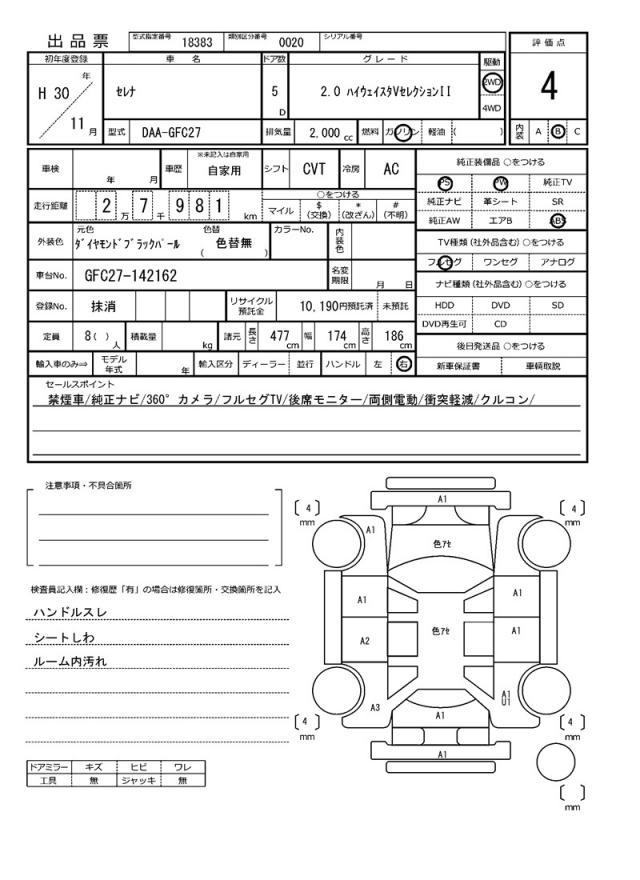 出品票
型式指定番号 18383 類別区分番号 0020 シリアル番号
初年度登録 車名 ドア数 グレード 駆動 評価点
H 30 年 11 月
セレナ 5 D 2.0 ハイウェイスタVセレクションII 2WD 4WD
4
型式 DAA-GFC27 排気量 2,000 cc 燃料 ガソリン 軽油 ( )
内装 A B C
車検 年 月 車歴 ※未記入は自家用 自家用 シフト CVT 冷房 AC
純正装備品 ○をつける
PS PW 純正TV
純正ナビ 革シート SR
純正AW エアB ABS
走行距離 2 万 7 千 9 8 1 km
○をつける
マイル $(交換) *(改ざん) #(不明)
外装色 元色 ダイヤモンドブラックパール 色替 ( 色替無 ) カラーNo. 内装色
TV種類(社外品含む)○をつける
フルセグ ワンセグ アナログ
車台No. GFC27-142162 名変期限 月 日
ナビ種類(社外品含む)○をつける
HDD DVD SD
DVD再生可 CD
登録No. 抹消 リサイクル預託金 10,190円預託済 未預託
定員 8( )人 積載量 kg 諸元 長さ 477 cm 幅 174 cm 高さ 186 cm
後日発送品 ○をつける
新車保証書 車輌取説
輸入車のみ⇒ モデル年式 年 輸入区分 ディーラー 並行 ハンドル 左 右
セールスポイント
禁煙車/純正ナビ/360°カメラ/フルセグTV/後席モニター/両側電動/衝突軽減/クルコン/
注意事項・不具合箇所
検査員記入欄：修復歴「有」の場合は修復箇所・交換箇所を記入
ハンドルスレ
シートしわ
ルーム内汚れ
ドアミラー キズ ヒビ ワレ
工具 無 ジャッキ 無
A1
[ 4 ] mm
[ 4 ] mm
A1
色アセ
A1
A1
色アセ
A2
A1
A3
A1
U1
A1
[ 4 ] mm
[ 4 ] mm
A1
[ ] mm